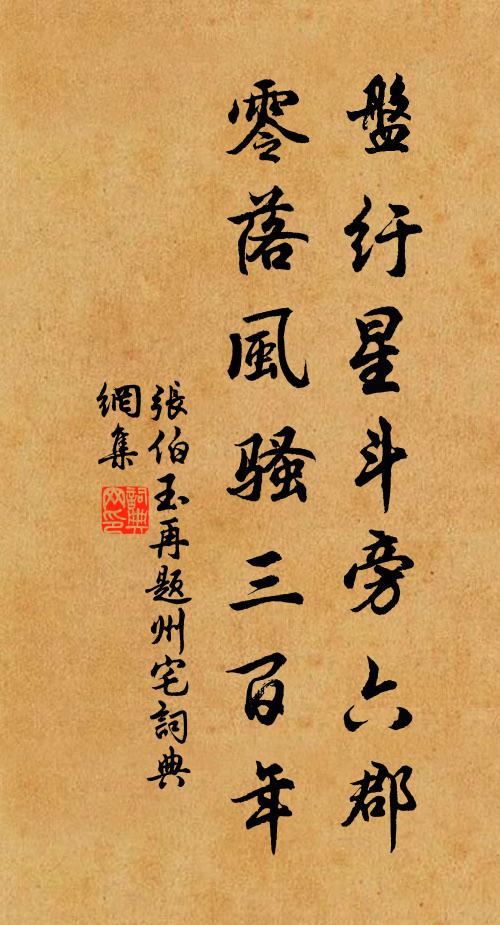 盤紆星斗旁六郡
零落風騷三百年
張伯玉再題州宅詞典
網集
詞典網印